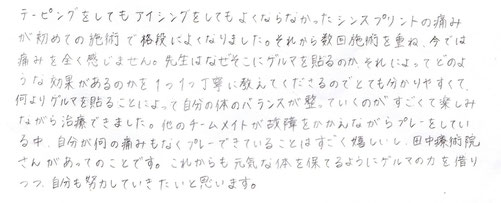 テーピングをしてもアイシングをしてもよくならなかったシンスプリントの痛み
が初めての施術で格段によくなりました。それから数回施術を重ね、今では
痛みを全く感じません。先生はなぜそこにゲルマを貼るのか、それによってどのよ
うな効果があるのかを1つ1つ丁寧に教えてくださるのでとても分かりやすくて、
何よりゲルマを貼ることによって自分の体のバランスが整っていくのがすごくて楽しみ
ながら治療できました。他のチームメイトが故障をかかえながらプレーをしてい
る中、自分が何の痛みもなくプレーできていることはすごく嬉しいし、田中療術院
さんがあってのことです。これからも元気な体を保てるようにゲルマの力を借り
つつ、自分も努力していきたいと思います。